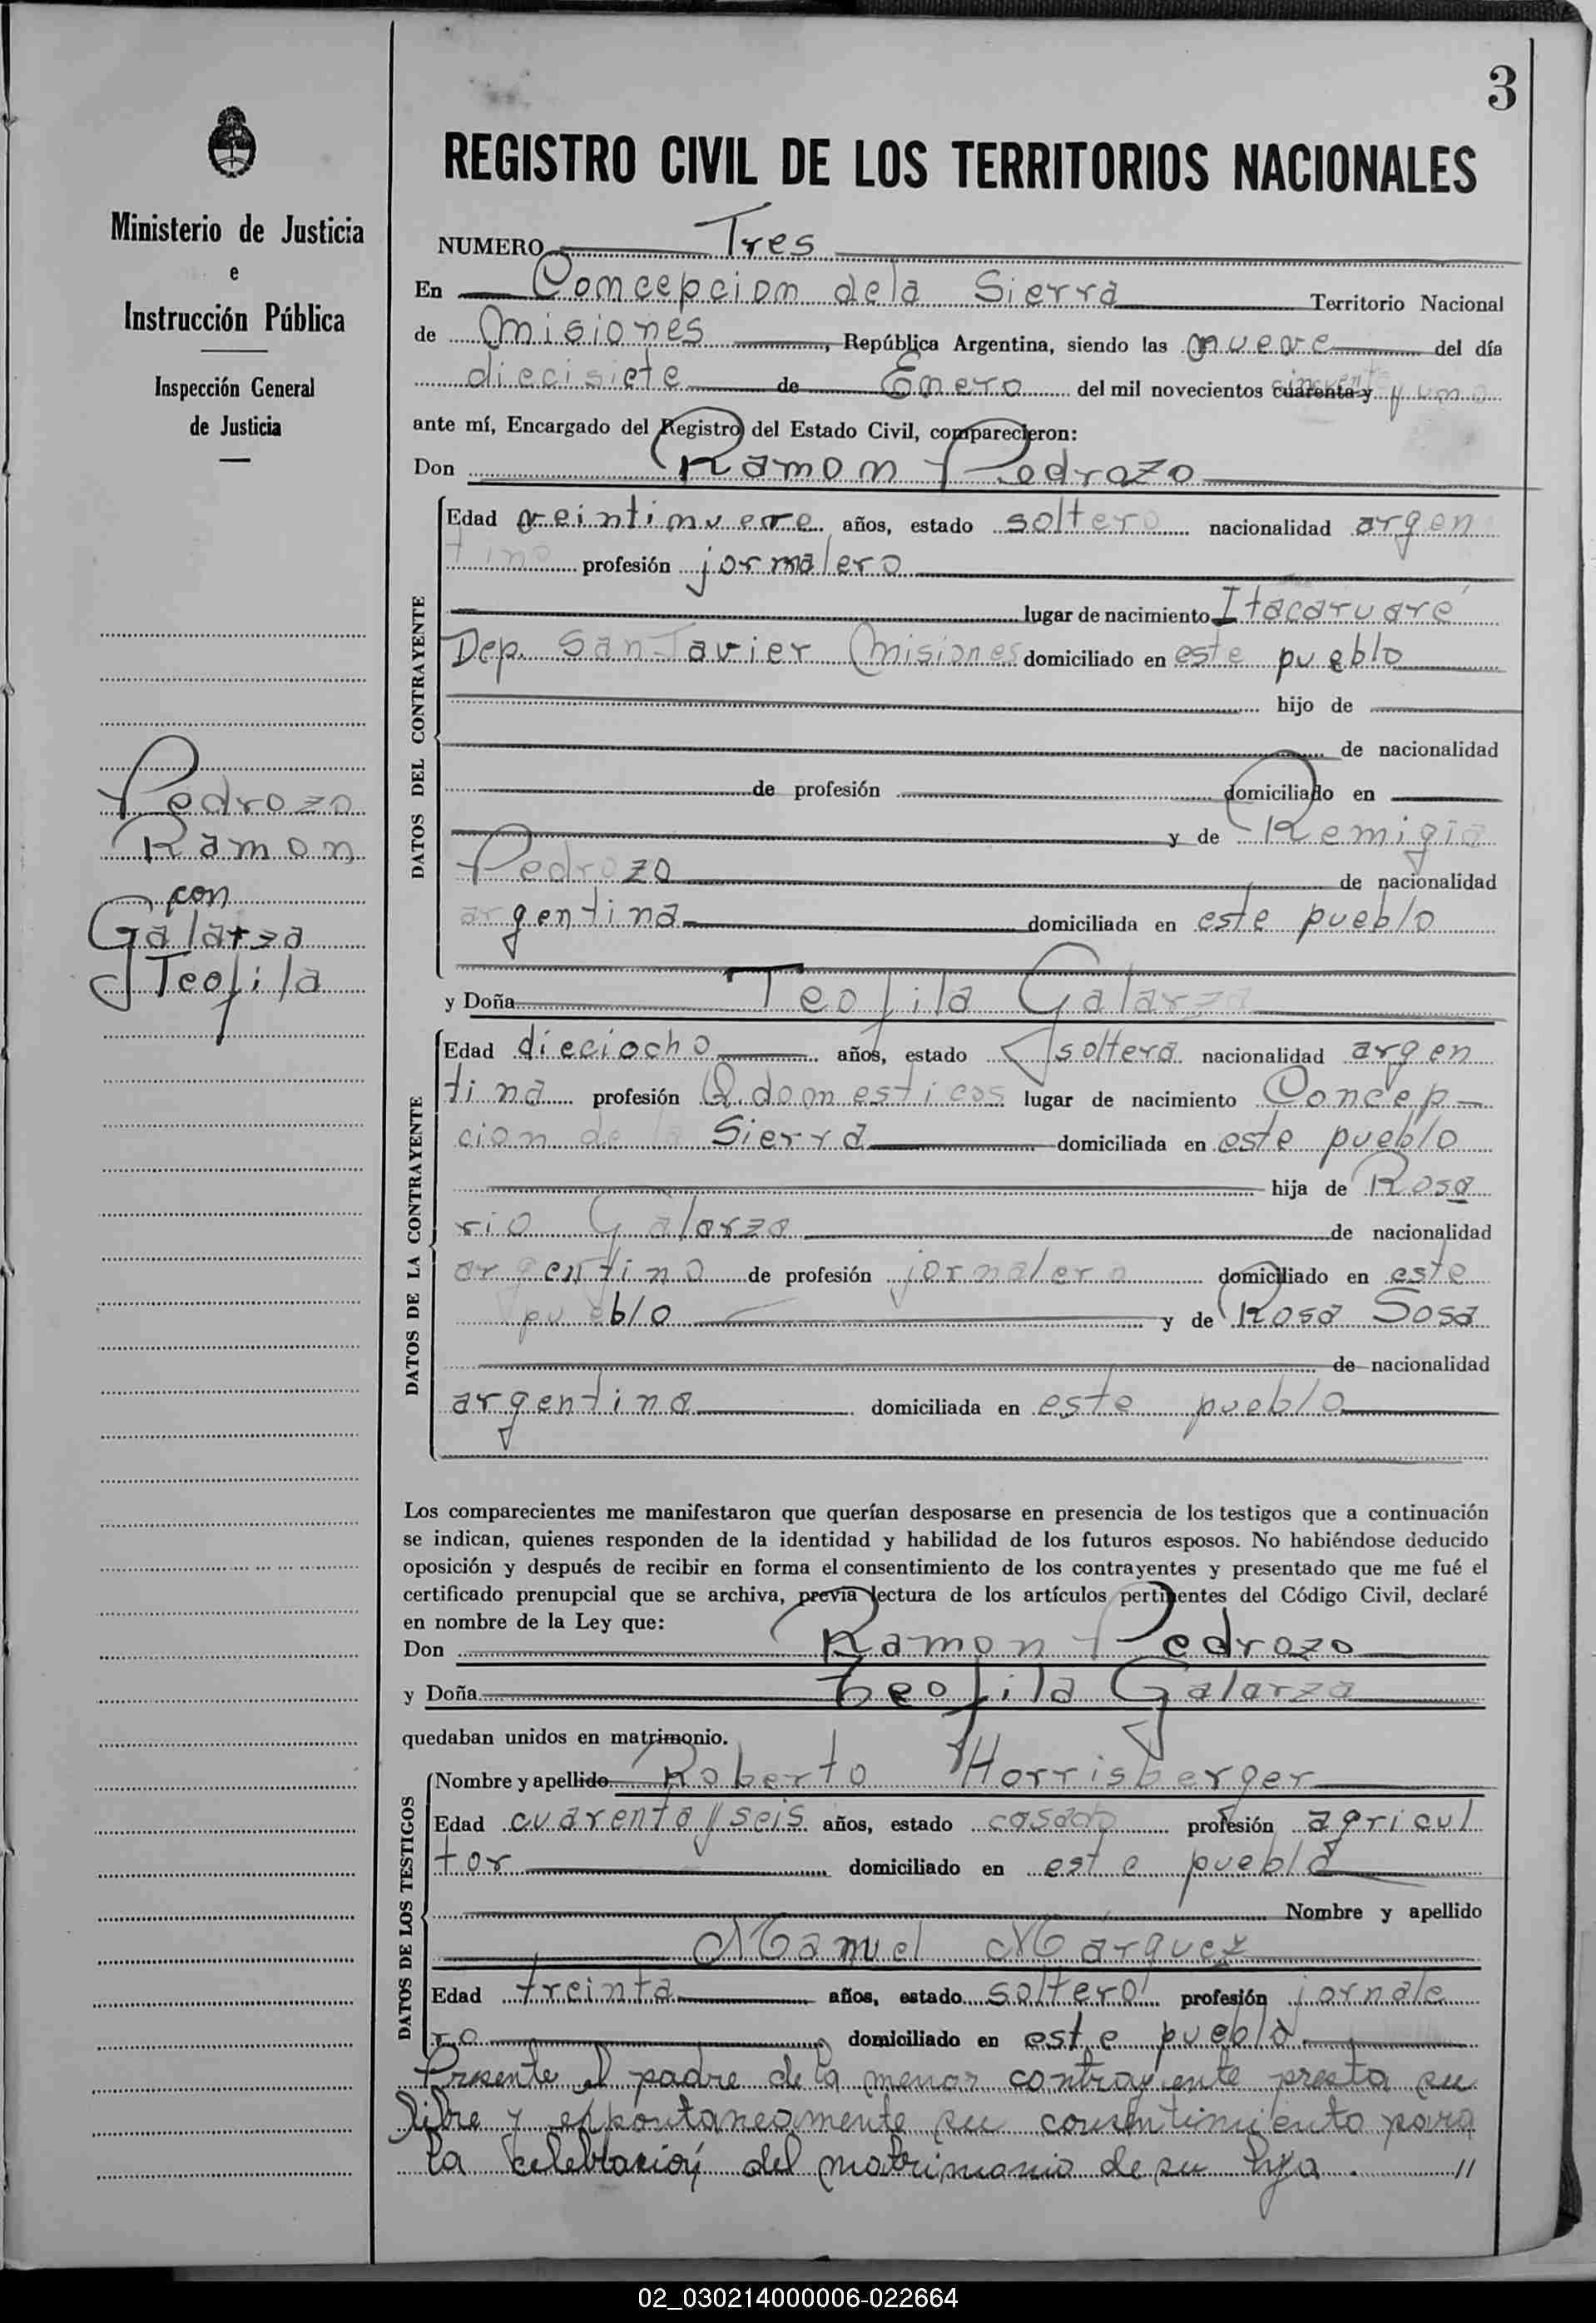 3
Ministerio de Justicia
e
Instrucción Pública
Inspección General
de Justicia
Pedrozo
Ramon
con
Galarza
Teofila
REGISTRO CIVIL DE LOS TERRITORIOS NACIONALES
NUMERO Tres
En Concepcion dela Sierra Territorio Nacional
de Misiones, República Argentina, siendo las nueve del día
diecisiete de Enero del mil novecientos cuarenta y cincuenta y uno
ante mí, Encargado del Registro del Estado Civil, comparecieron:
Don Ramon Pedrozo
DATOS DEL CONTRAYENTE
Edad veintinueve años, estado soltero nacionalidad argen
tino profesión jornalero
lugar de nacimiento Itacaruaré
Dep. San Javier Misiones domiciliado en este pueblo
hijo de
de nacionalidad
de profesión domiciliado en
y de Remigia
Pedrozo de nacionalidad
argentina domiciliada en este pueblo
y Doña Teofila Galarza
DATOS DE LA CONTRAYENTE
Edad dieciocho años, estado soltera nacionalidad argen
tina profesión Q. domesticos lugar de nacimiento Concep-
cion de la Sierra domiciliada en este pueblo
hija de Rosa
rio Galarza de nacionalidad
argentino de profesión jornalero domiciliado en este
pueblo y de Rosa Sosa
de nacionalidad
argentina domiciliada en este pueblo
Los comparecientes me manifestaron que querían desposarse en presencia de los testigos que a continuación
se indican, quienes responden de la identidad y habilidad de los futuros esposos. No habiéndose deducido
oposición y después de recibir en forma el consentimiento de los contrayentes y presentado que me fué el
certificado prenupcial que se archiva, previa lectura de los artículos pertinentes del Código Civil, declaré
en nombre de la Ley que:
Don Ramon Pedrozo
y Doña Teofila Galarza
quedaban unidos en matrimonio.
DATOS DE LOS TESTIGOS
Nombre y apellido Roberto Horrisberger
Edad cuarenta y seis años, estado casado profesión agricul
tor domiciliado en este pueblo
Nombre y apellido
Manuel Márquez
Edad treinta años, estado soltero profesión jornale
ro domiciliado en este pueblo.
Presente el padre de la menor contrayente presta su
libre y espontaneamente su consentimiento para
la celebración del matrimonio de su hija. //
02_030214000006-022664